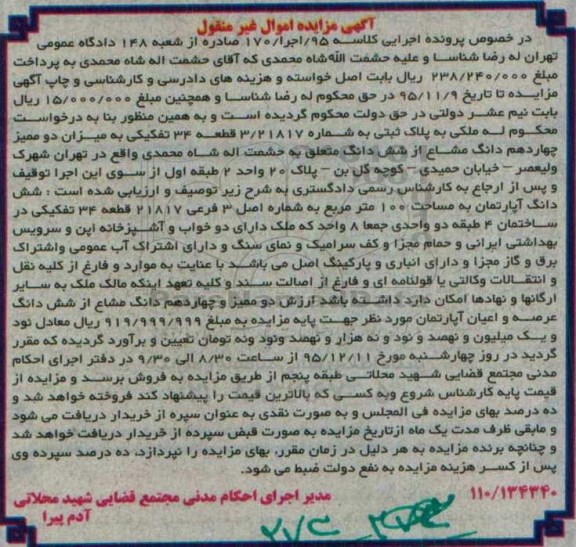 آگهی مزایده اموال غیر منقول
در خصوص پرونده اجرایی کلاسه ۹۵/اجرا/۱۷۰ صادره از شعبه ۱۴۸ دادگاه عمومی
تهران له رضا شناسا و علیه حشمت الله شاه محمدی که آقای حشمت اله شاه محمدی به پرداخت
مبلغ ۲۳۸/۲۴۰/۰۰۰ ریال بابت اصل خواسته و هزینه های دادرسی و کارشناسی و چاپ آگهی
مزایده تا تاریخ ۹۵/۱۱/۹ در حق محکوم له رضا شناسا و همچنین مبلغ ۱۵/۰۰۰/۰۰۰ ریال
بابت نیم عشر دولتی در حق دولت محکوم گردیده است و به همین منظور بنا به درخواست
محکوم له ملکی به پلاک ثبتی به شماره ۳/۲۱۸۱۷ قطعه ۳۴ تفکیکی به میزان دو ممیز
چهاردهم دانگ مشاع از شش دانگ متعلق به حشمت اله شاه محمدی واقع در تهران شهرک
ولیعصر – خیابان حمیدی – کوچه گل بن – پلاک ۲۰ واحد ۲ طبقه اول از سوی این اجرا توقیف
و پس از ارجاع به کارشناس رسمی دادگستری به شرح زیر توصیف و ارزیابی شده است : شش
دانگ آپارتمان به مساحت ۱۰۰ متر مربع به شماره اصل ۳ فرعی ۲۱۸۱۷ قطعه ۳۴ تفکیکی در
ساختمان ۴ طبقه دو واحدی جمعا ۸ واحد که ملک دارای دو خواب و آشپزخانه اپن و سرویس
بهداشتی ایرانی و حمام مجزا و کف سرامیک و نمای سنگ و دارای اشتراک آب عمومی واشتراک
برق و گاز مجزا و دارای انباری و پارکینگ اصل می باشد با عنایت به موارد و فارغ از کلیه نقل
و انتقالات وکالتی یا قولنامه ای و فارغ از اصالت سند و کلیه تعهد اینکه مالک ملک به سایر
ارگانها و نهادها امکان دارد داشته باشد ارزش دو ممیز و چهاردهم دانگ مشاع از شش دانگ
عرصه و اعیان آپارتمان مورد نظر جهت پایه مزایده به مبلغ ۹۱۹/۹۹۹/۹۹۹ ریال معادل نود
و یک میلیون و نهصد و نود و نه هزار و نهصد ونود ونه تومان تعیین و برآورد گردیده که مقرر
گردید در روز چهارشنبه مورخ ۹۵/۱۲/۱۱ از ساعت ۸/۳۰ الی ۹/۳۰ در دفتر اجرای احکام
مدنی مجتمع قضایی شهید محلاتی طبقه پنجم از طریق مزایده به فروش برسد و مزایده از
قیمت پایه کارشناس شروع وبه کسی که بالاترین قیمت را پیشنهاد کند فروخته خواهد شد و
ده درصد بهای مزایده فی المجلس و به صورت نقدی به عنوان سپره از خریدار دریافت می شود
و مابقی ظرف مدت یک ماه ازتاریخ مزایده به صورت قبض سپرده از خریدار دریافت خواهد شد
و چنانچه برنده مزایده به هر دلیل در زمان مقرر، بهای مزایده را نپردازد، ده درصد سپرده وی
پس از کسر هزینه مزایده به نفع دولت ضبط می شود.
۱۱۰/۱۳۴۳۴۰ مدیر اجرای احکام مدنی مجتمع قضایی شهید محلاتی
آدم پیرا